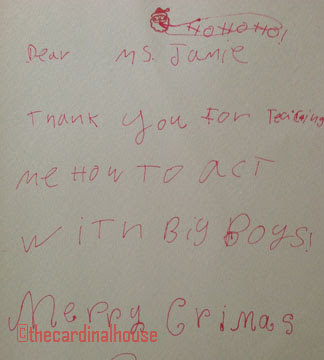 HO HO HO!
Dear Ms. Jamie
Thank you For Teicing
Me How To act
WiTh Big Boys!
Merry Crimas
©thecardinalhouse